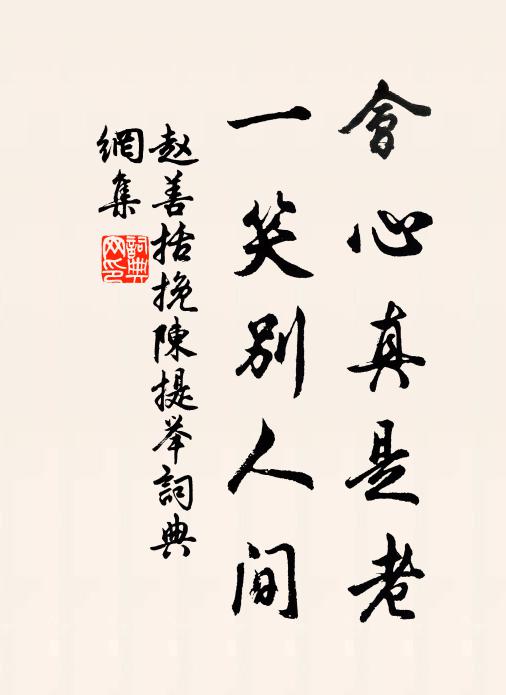 會心真是老
一笑別人间
赵善括挽陳提举詞典
網集
詞典
网印